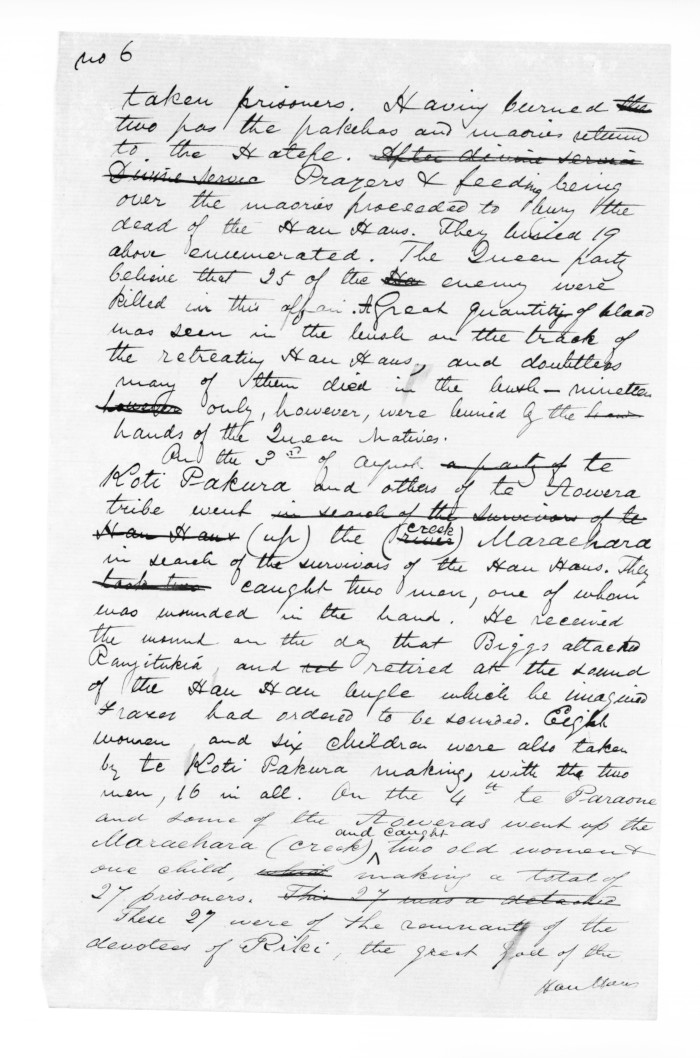 no 6
taken prisoners. Having burned the
two pas the pakehas and maories return
to the Hatepe. After divine service
Divine servic Prayers & feeding being
over the maories proceeded to bury the
dead of the Hau Haus. They buried 19
above enumerated. The Queen party
believe that 25 of the Ha enemy were
killed in this affair. A Great quantity of blood
was seen in the bush on the track of
the retreating Hau Haus, and doubtless
many of them died in the bush – nineteen
however only, however, were buried by the
hands of the Queen Natives.
On the 3rd of a party of te
Koti Pakura and others of te Aowera
tribe went in search of the survivors of te
Hau Haus (up) the (river creek) Maraehara
in search of the survivors of the Hau Haus. They
took two caught two men, one of whom
was wounded in the hand. He received
the wound on the day that Biggs attacked
Rangitukia, and retired at the sound
of the Hau Hau bugle which he imagined
Fraser had ordered to be sounded. Eight
women and six children were also taken
by te Koti Pakura making, with the two
men, 16 in all. On the 4th te Paraone
and some of the Aoweras went up the
Maraehara (creek) and caught two old women &
one child, which making a total of
27 prisoners. This 27 was a detached
These 27 were of the remnants of the
devotees of Riki, the great God of the
Hau Haus